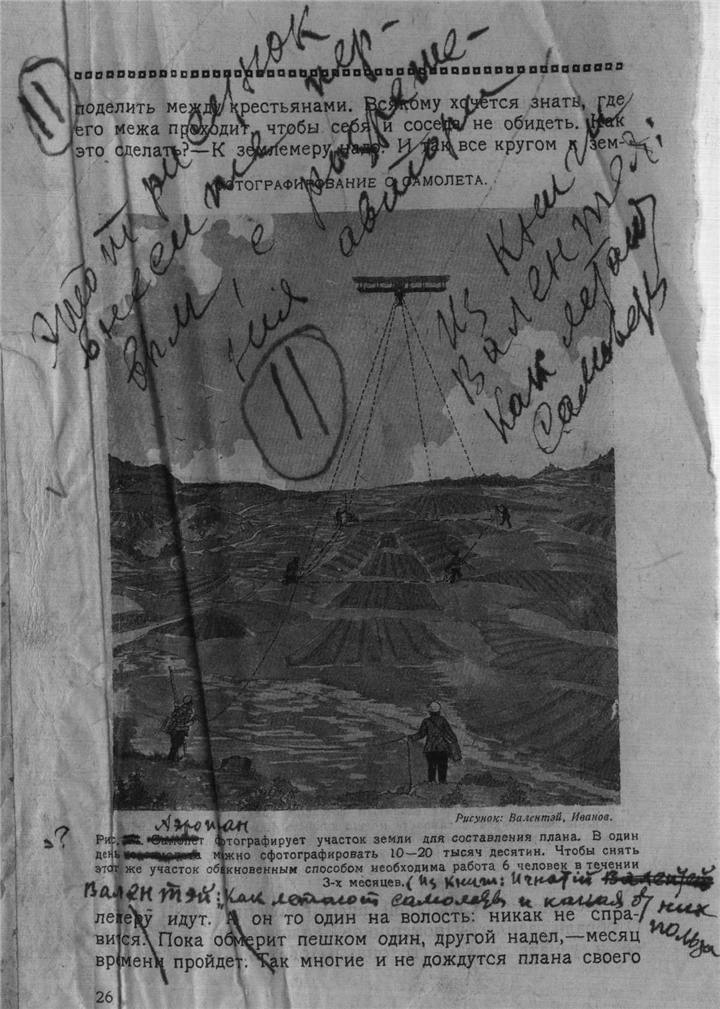 11
поделить между крестьянами. Всякому хочется знать, где
его межа проходит, чтобы себя и соседа не обидеть. Как
это сделать?—К землемеру надо. И так все кругом к зем-
ФОТОГРАФИРОВАНИЕ С САМОЛЕТА.
Этот рисунок
внесен пер-
вым, с разреше-
ния автора
11
Из книги
Валентэя:
Как летают
Самолеты
Рисунок: Валентэй, Иванов.
Аэроплан
Рис. Самолет фотографирует участок земли для составления плана. В один
день можно сфотографировать 10—20 тысяч десятин. Чтобы снять
этот же участок обыкновенным способом необходима работа 6 человек в течении
3-х месяцев. (Из книги: Игнатій Валентэй
Валентэй: „Как летают самолеты и какая от них
польза
лемеру идут. А он то один на волость: никак не спра-
вится. Пока обмерит пешком один, другой надел,—месяц
времени пройдет. Так многие и не дождутся плана своего
26